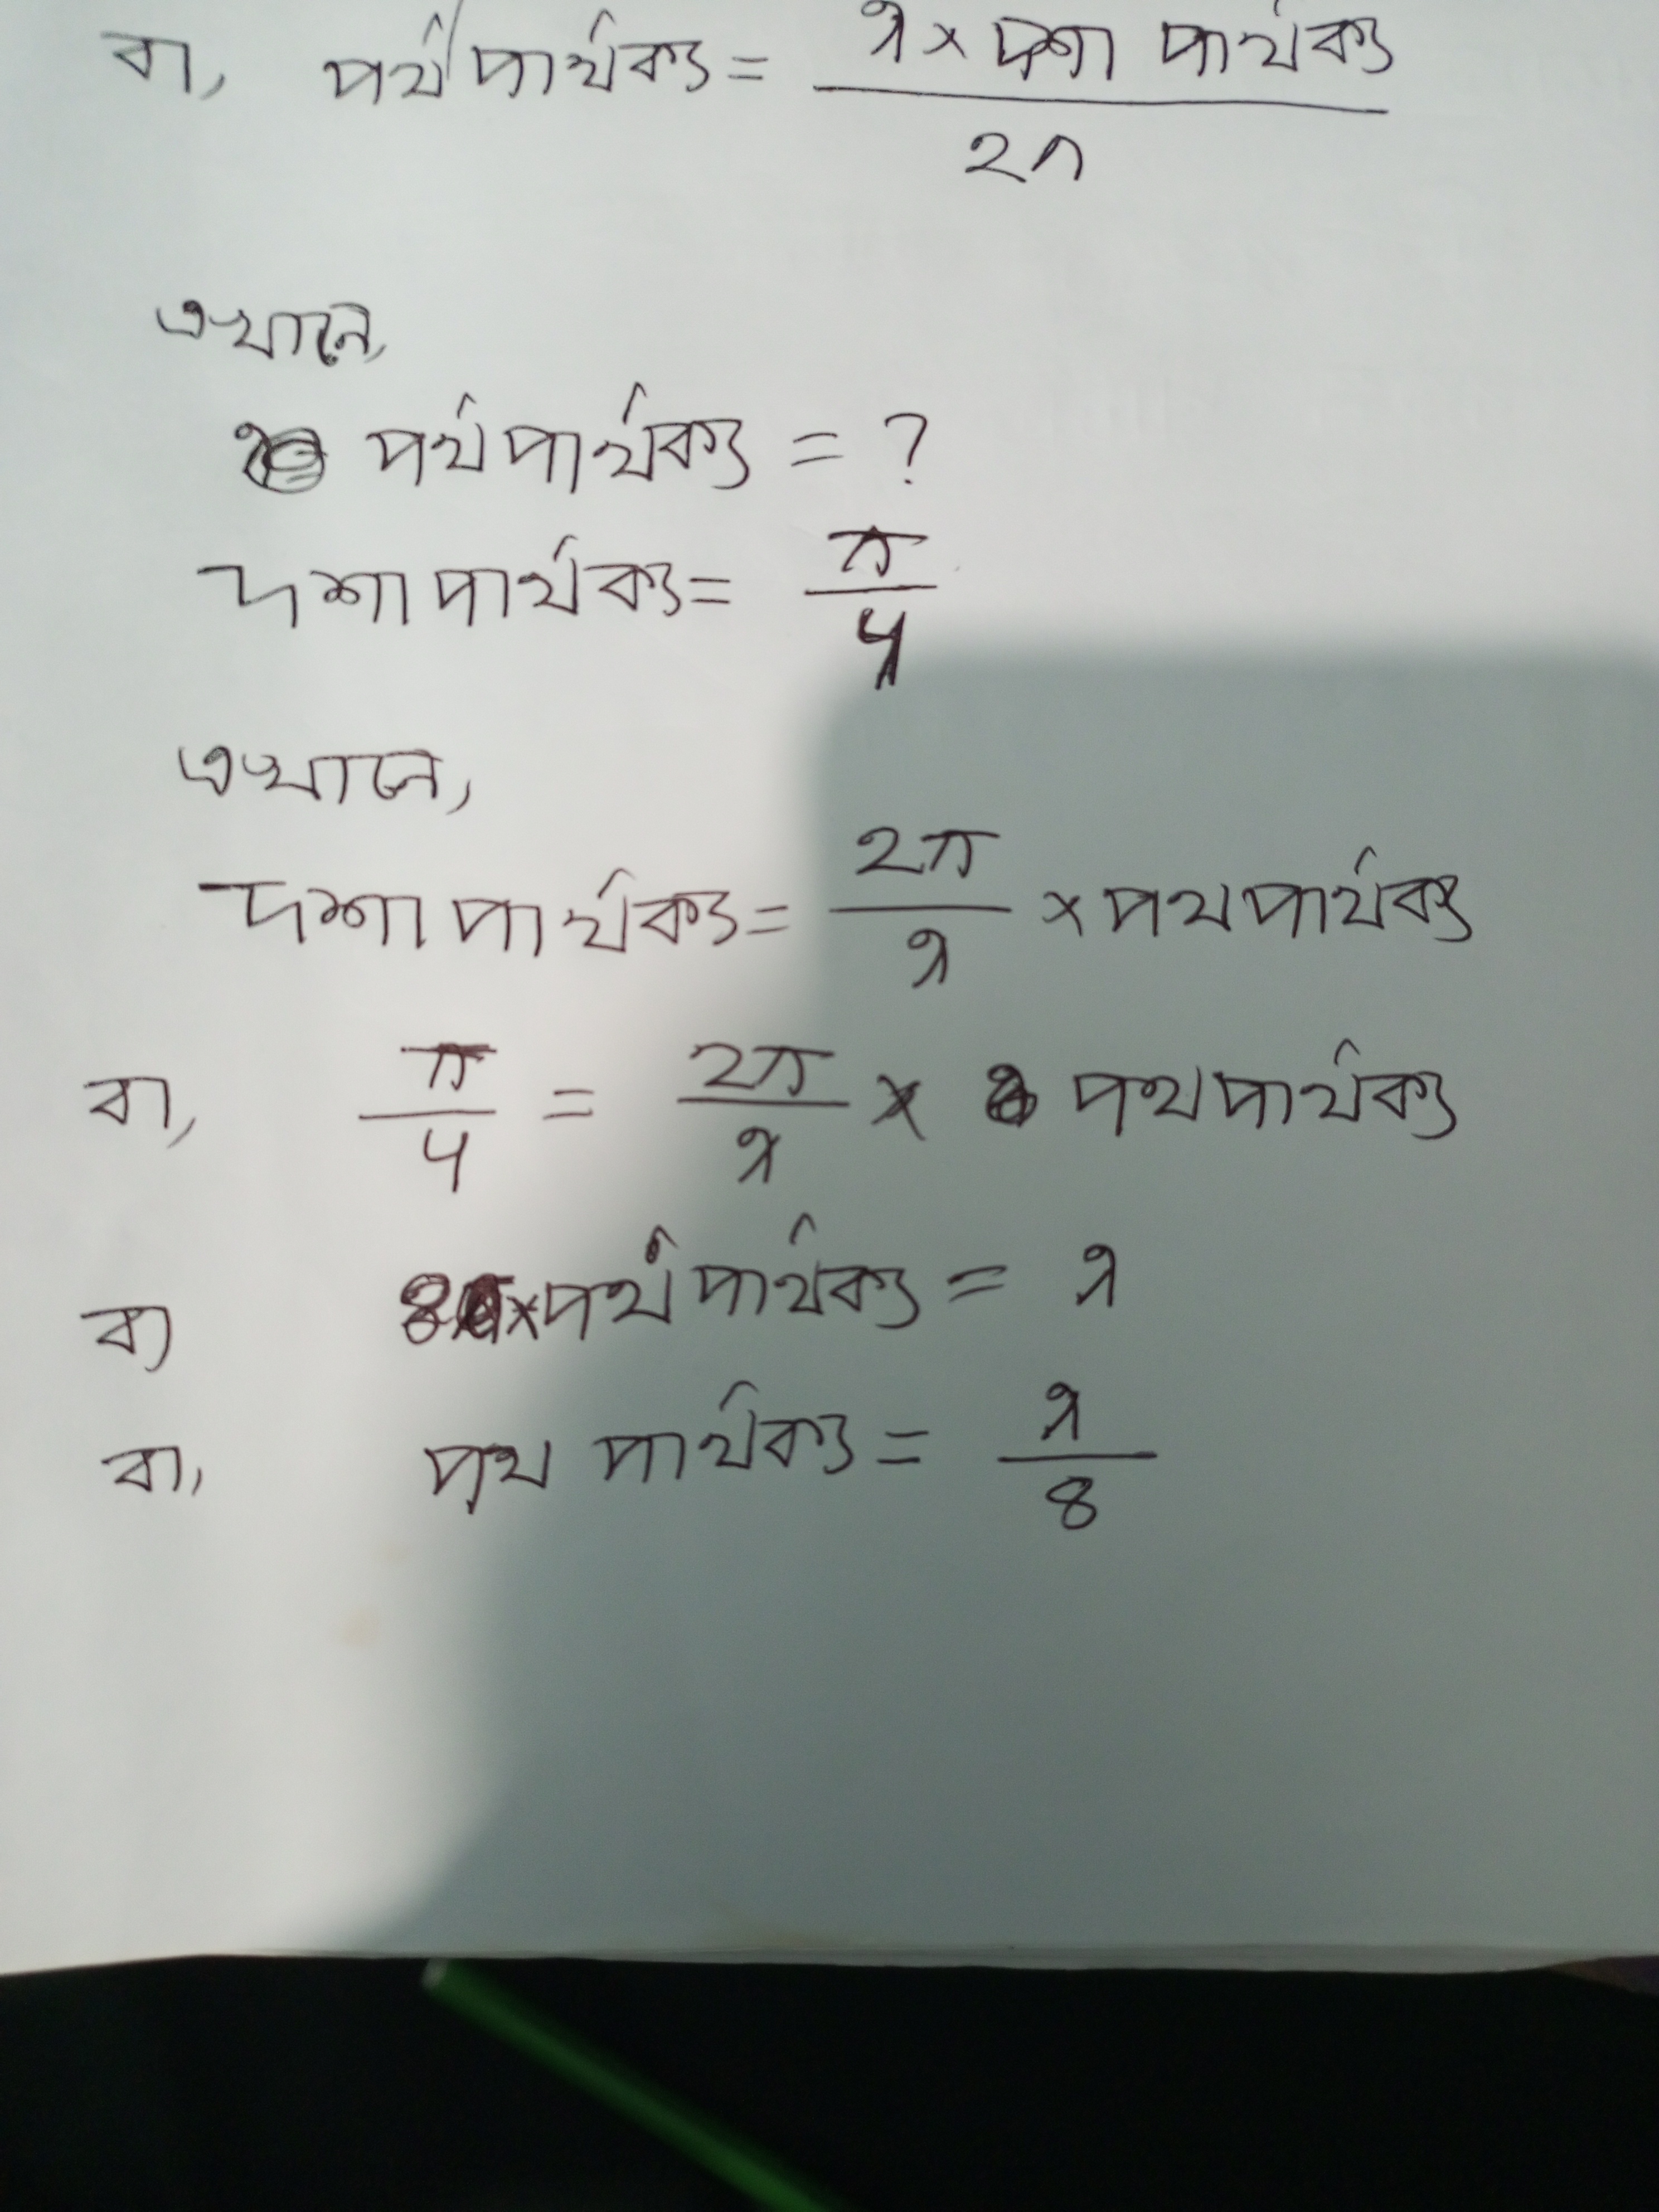 বা, পর্থ পার্থক্য = λ × দশা পার্থক্য / 2π
এখানে,
পর্থ পার্থক্য = ?
দশা পার্থক্য = π / 4
এখানে,
দশা পার্থক্য = 2π / λ × পথ পার্থক্য
বা, π / 4 = 2π / λ × পথ পার্থক্য
বা 8 × পর্থ পার্থক্য = λ
বা, পথ পার্থক্য = λ / 8